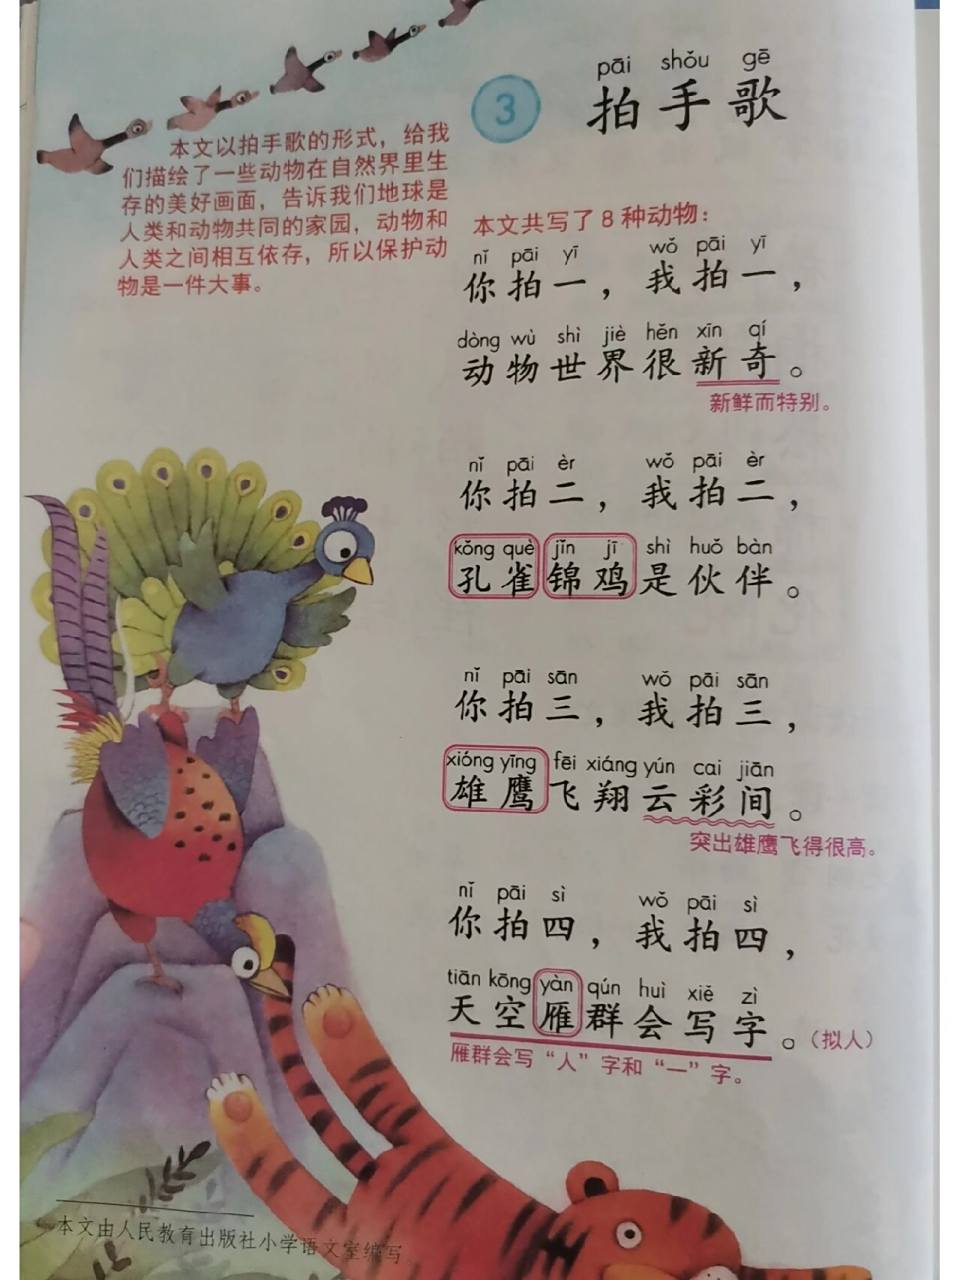 3
pāi shǒu gē
拍手歌
本文以拍手歌的形式，给我
们描绘了一些动物在自然界里生
存的美好画面，告诉我们地球是
人类和动物共同的家园，动物和
人类之间相互依存，所以保护动
物是一件大事。
本文共写了8种动物：
nǐ pāi yī wǒ pāi yī
你拍一，我拍一，
dòng wù shì jiè hěn xīn qí
动物世界很新奇。
新鲜而特别。
nǐ pāi èr wǒ pāi èr
你拍二，我拍二，
kǒng què jǐn jī shì huǒ bàn
孔雀锦鸡是伙伴。
nǐ pāi sān wǒ pāi sān
你拍三，我拍三，
xióng yīng fēi xiáng yún cai jiān
雄鹰飞翔云彩间。
突出雄鹰飞得很高。
nǐ pāi sì wǒ pāi sì
你拍四，我拍四，
tiān kōng yàn qún huì xiě zì
天空雁群会写字。（拟人）
雁群会写“人”字和“一”字。
本文由人民教育出版社小学语文室编写